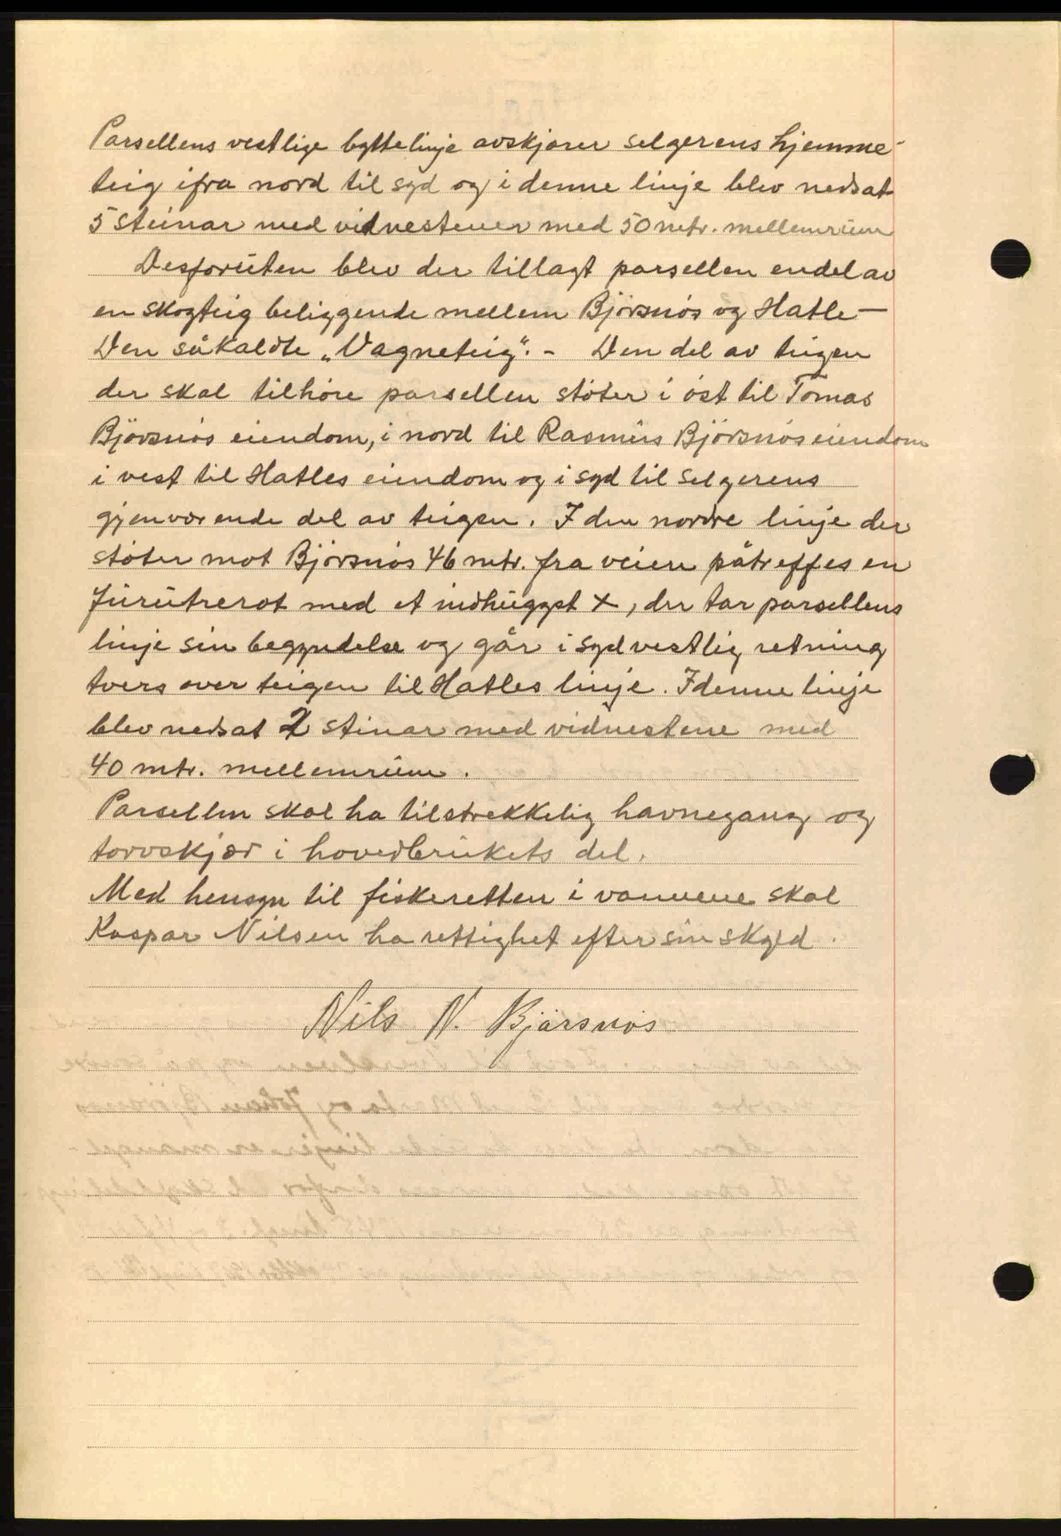 Parsellens vestlige byttelinje avskjærer selgerens hjemme-
teig ifra nord til syd og i denne linje blev nedsat
5 steinar med vidnestener med 50 mtr. mellemrum
Desforuten blev der tillagt parsellen endel av
en skogteig beliggende mellem Björsnös og Hatle —
Den såkaldte „Vagneteig". - Den del av teigen
der skal tilhöre parsellen stöter i öst til Tomas
Björsnös eiendom, i nord til Rasmus Björsnös eiendom
i vest til Hatles eiendom og i syd til selgerens
gjenværende del av teigen. I den nordre linje der
stöter mot Björsnös 46 mtr. fra veien påtreffes en
furutrerot med et indhugget X, der tar parsellens
linje sin begyndelse og går i sydvestlig retning
tvers over teigen til Hatles linje. I denne linje
blev nedsat 2 steinar med vidnestene med
40 mtr. mellemrum.
Parsellen skal ha tilstrekkelig havnegang og
torvskjær i hovedbrukets del.
Med hensyn til fiskeretten i vannene skal
Kaspar Nilsen ha rettighet efter sin skyld.
Nils N. Björsnös